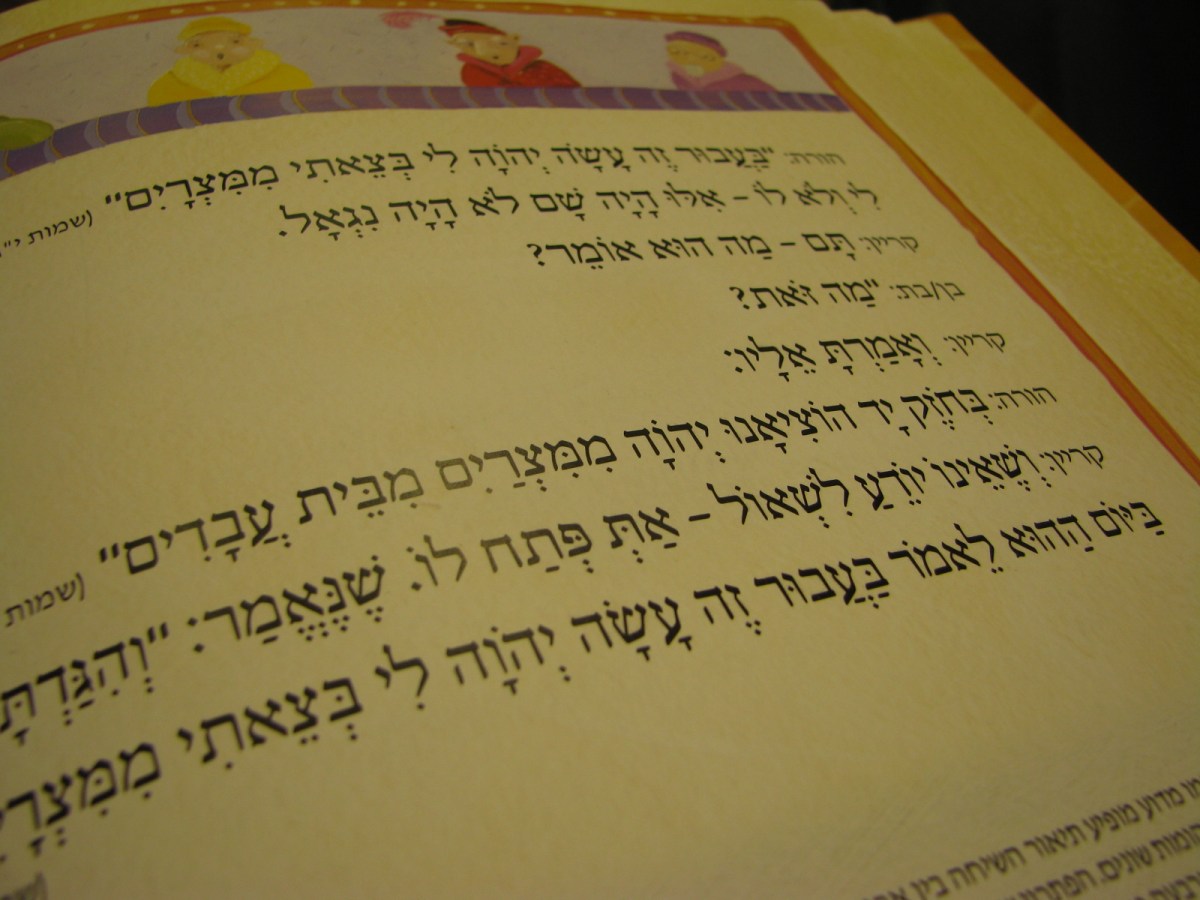 הורה: "בַּעֲבוּר זֶה עָשָׂה יְהוָֹה לִי בְּצֵאתִי מִמִּצְרָיִם" (שמות י"
לִי וְלֹא לוֹ – אִלּוּ הָיָה שָׁם לֹא הָיָה נִגְאָל.
קריין: תָּם – מַה הוּא אוֹמֵר?
בן/בת: "מַה זֹּאת?
קריין: וְאָמַרְתָּ אֵלָיו:
הורה: בְּחֹזֶק יָד הוֹצִיאָנוּ יְהוָֹה מִמִּצְרַיִם מִבֵּית עֲבָדִים" (שמות
קריין: וְשֶׁאֵינוֹ יוֹדֵעַ לִשְׁאוֹל – אַתְּ פְּתַח לוֹ. שֶׁנֶּאֱמַר: "וְהִגַּדְתָּ
בַּיּוֹם הַהוּא לֵאמֹר בַּעֲבוּר זֶה עָשָׂה יְהוָֹה לִי בְּצֵאתִי מִמִּצְרָיִ
מדוע מופיע תיאור השיחה בין
שונים. הפתרון